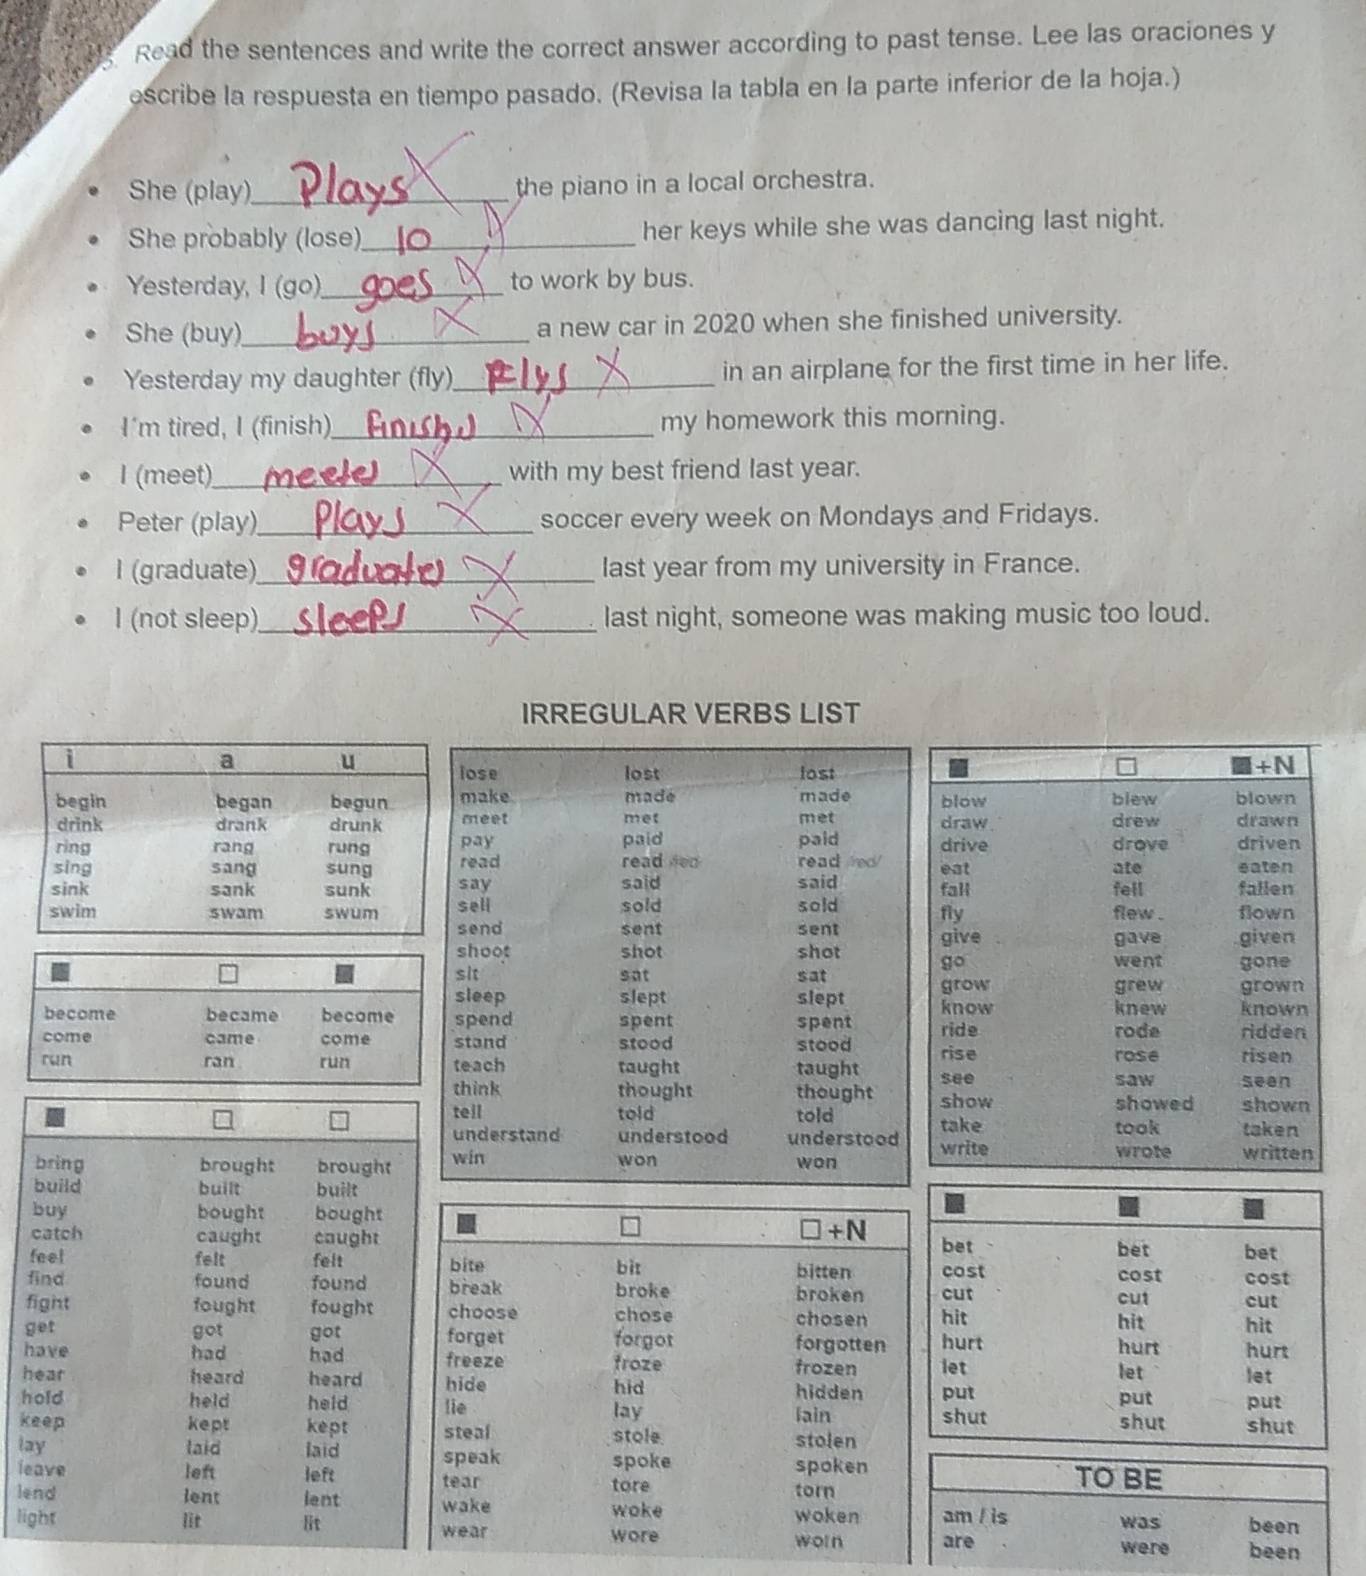 Read the sentences and write the correct answer according to past tense. Lee las oraciones y
escribe la respuesta en tiempo pasado. (Revisa la tabla en la parte inferior de la hoja.)
• She (play) Plays the piano in a local orchestra.
• She probably (lose) lo her keys while she was dancing last night.
• Yesterday, I (go) goes to work by bus.
• She (buy) buys a new car in 2020 when she finished university.
• Yesterday my daughter (fly) Flys in an airplane for the first time in her life.
• I'm tired, I (finish) finished my homework this morning.
• I (meet) meetes with my best friend last year.
• Peter (play) Plays soccer every week on Mondays and Fridays.
• I (graduate) graduates last year from my university in France.
• I (not sleep) sleeps last night, someone was making music too loud.
IRREGULAR VERBS LIST
i a u
begin began begun
drink drank drunk
ring rang rung
sing sang sung
sink sank sunk
swim swam swum
■ □ ■
become became become
come came come
run ran run
■ □ □
bring brought brought
build built built
buy bought bought
catch caught caught
feel felt felt
find found found
fight fought fought
get got got
have had had
hear heard heard
hold held held
keep kept kept
lay laid laid
leave left left
lend lent lent
light lit lit
lose lost lost
make made made
meet met met
pay paid paid
read read /red/ read /red/
say said said
sell sold sold
send sent sent
shoot shot shot
sit sat sat
sleep slept slept
spend spent spent
stand stood stood
teach taught taught
think thought thought
tell told told
understand understood understood
win won won
■ □ □+N
bite bit bitten
break broke broken
choose chose chosen
forget forgot forgotten
freeze froze frozen
hide hid hidden
lie lay lain
steal stole stolen
speak spoke spoken
tear tore torn
wake woke woken
wear wore worn
■ □ ■+N
blow blew blown
draw drew drawn
drive drove driven
eat ate eaten
fall fell fallen
fly flew flown
give gave given
go went gone
grow grew grown
know knew known
ride rode ridden
rise rose risen
see saw seen
show showed shown
take took taken
write wrote written
■ ■ ■
bet bet bet
cost cost cost
cut cut cut
hit hit hit
hurt hurt hurt
let let let
put put put
shut shut shut
TO BE
am / is was been
are were been